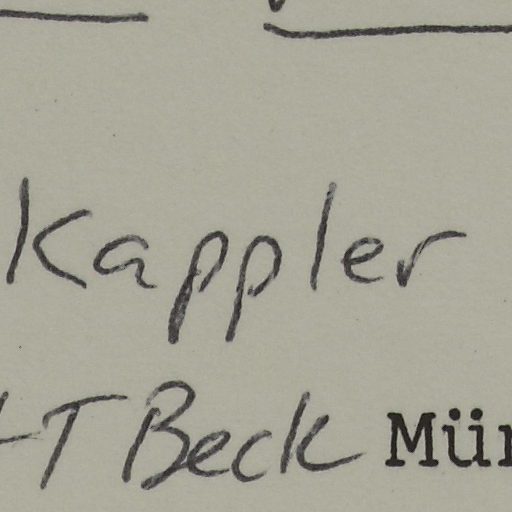 Kappler
T Beck Mün